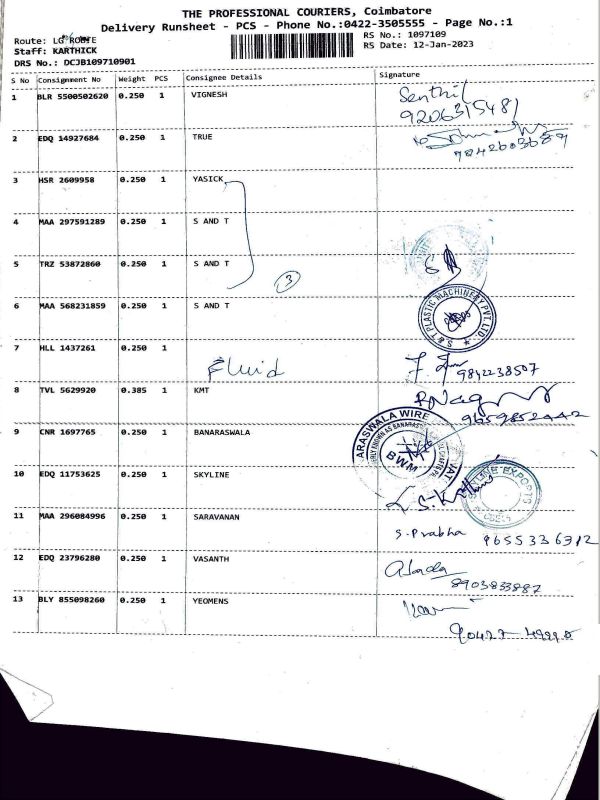 THE PROFESSIONAL COURIERS, Coimbatore
Delivery Runsheet - PCS - Phone No.:0422-3505555 - Page No.:1
Route: LG ROUTE
RS No.: 1097109
Staff: KARTHICK
RS Date: 12-Jan-2023
DRS No.: DCJB109710901
S No Consignment No Weight PCS Consignee Details Signature
1 BLR 5500502620 0.250 1 VIGNESH Senthil
9206315481
2 EDQ 14927684 0.250 1 TRUE
3 HSR 2609958 0.250 1 YASICK
4 MAA 297591289 0.250 1 S AND T
5 TRZ 53872860 0.250 1 S AND T
3
6 MAA 568231859 0.250 1 S AND T
S & T PLASTIC MACHINERY PVT. LTD
7 HLL 1437261 0.250 1
Fluid 9842238507
8 TVL 5629920 0.385 1 KMT
9659852442
9 CNR 1697765 0.250 1 BANARASWALA
ARASWALA WIRE
BWM
10 EDQ 11753625 0.250 1 SKYLINE
LINE EXPORTS
11 MAA 296084996 0.250 1 SARAVANAN
S. Prabha 9655336312
12 EDQ 23796280 0.250 1 VASANTH
8903833887
13 BLY 855098260 0.250 1 YEOMENS